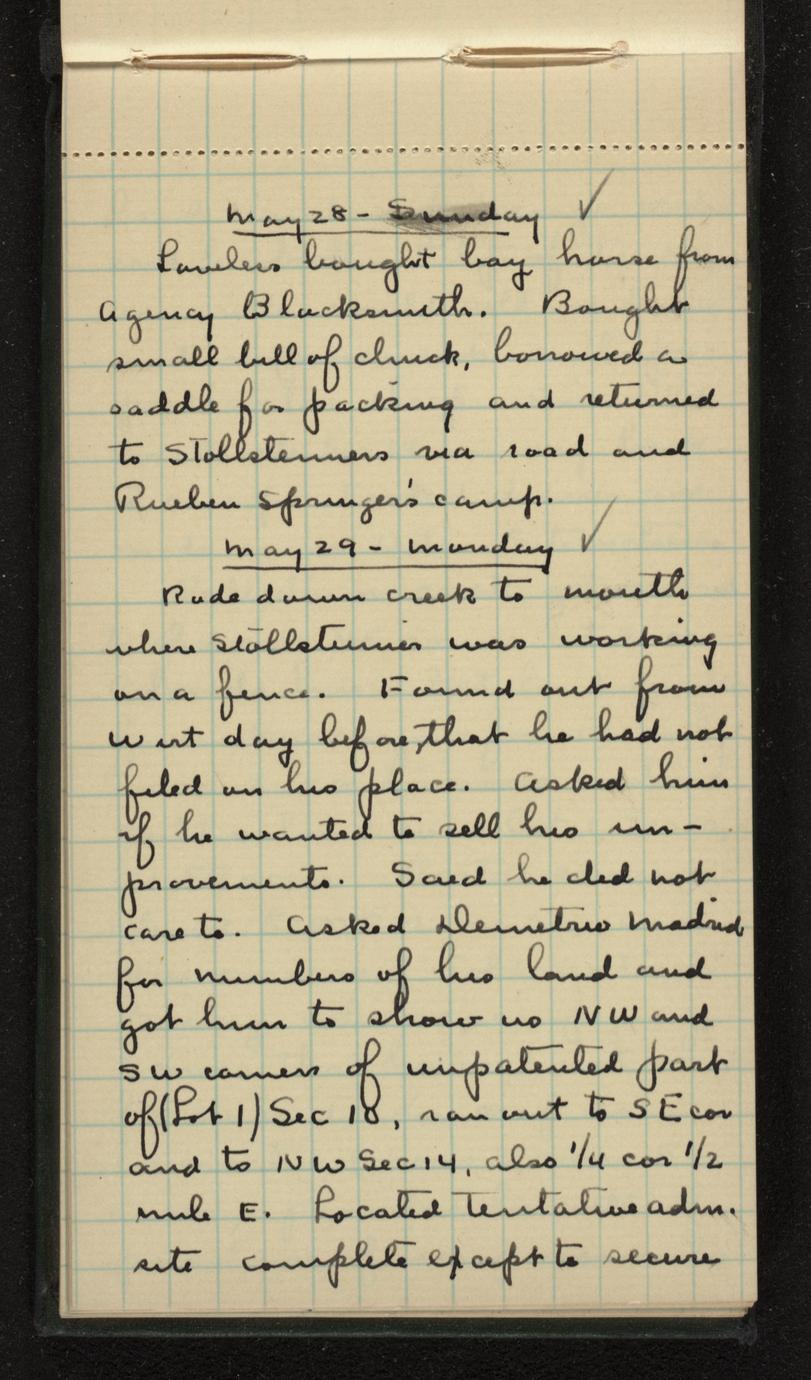 May 28 - Sunday ✓
Loveless bought bay horse from
Agency Blacksmith. Bought
small bill of chuck, borrowed a
saddle for packing and returned
to Stollsteimers via road and
Rueben Springer's camp.
May 29 - Monday ✓
Rode down creek to mouth
where Stollsteimer was working
on a fence. Found out from
Wirt day before, that he had not
filed on his place. Asked him
if he wanted to sell his im-
provements. Said he did not
care to. Asked Demetrio Madrid
for numbers of his land and
got him to show us NW and
SW corners of unpatented part
of (Lot 1) Sec 18, ran out to SE cor
and to NW Sec 14, also 1/4 cor 1/2
mile E. Located tentative adm.
site complete except to secure